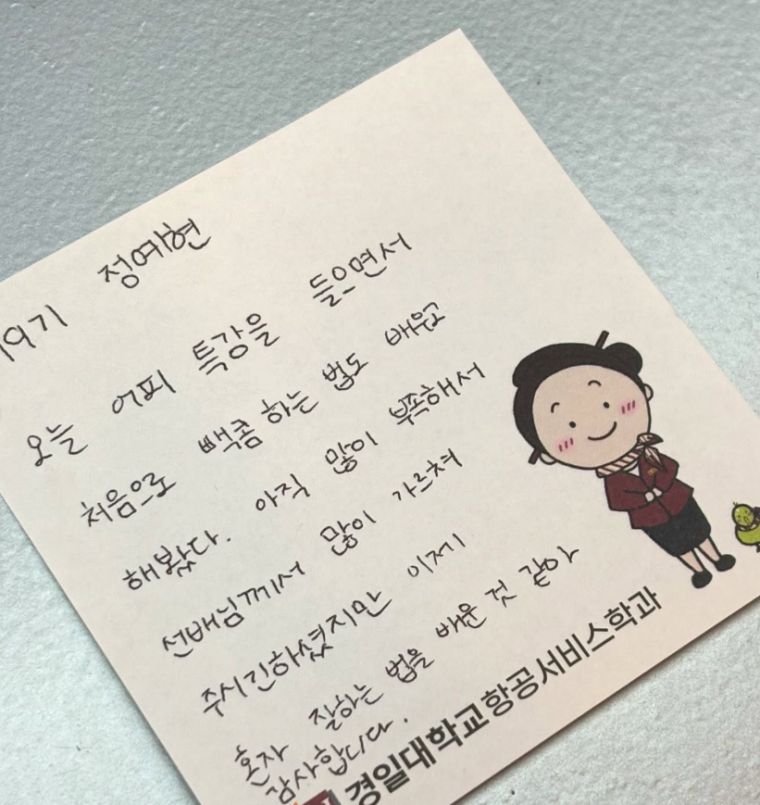 19기 정예현
오늘 어피 특강을 들으면서
처음으로 빽콤 하는 법도 배워고
해봤다. 아직 많이 부족해서
선배님께서 많이 가르쳐
주시긴하셨지만 이제
혼자 잘하는 법을 배운 것 같아
감사합니다.
경일대학교항공서비스학과